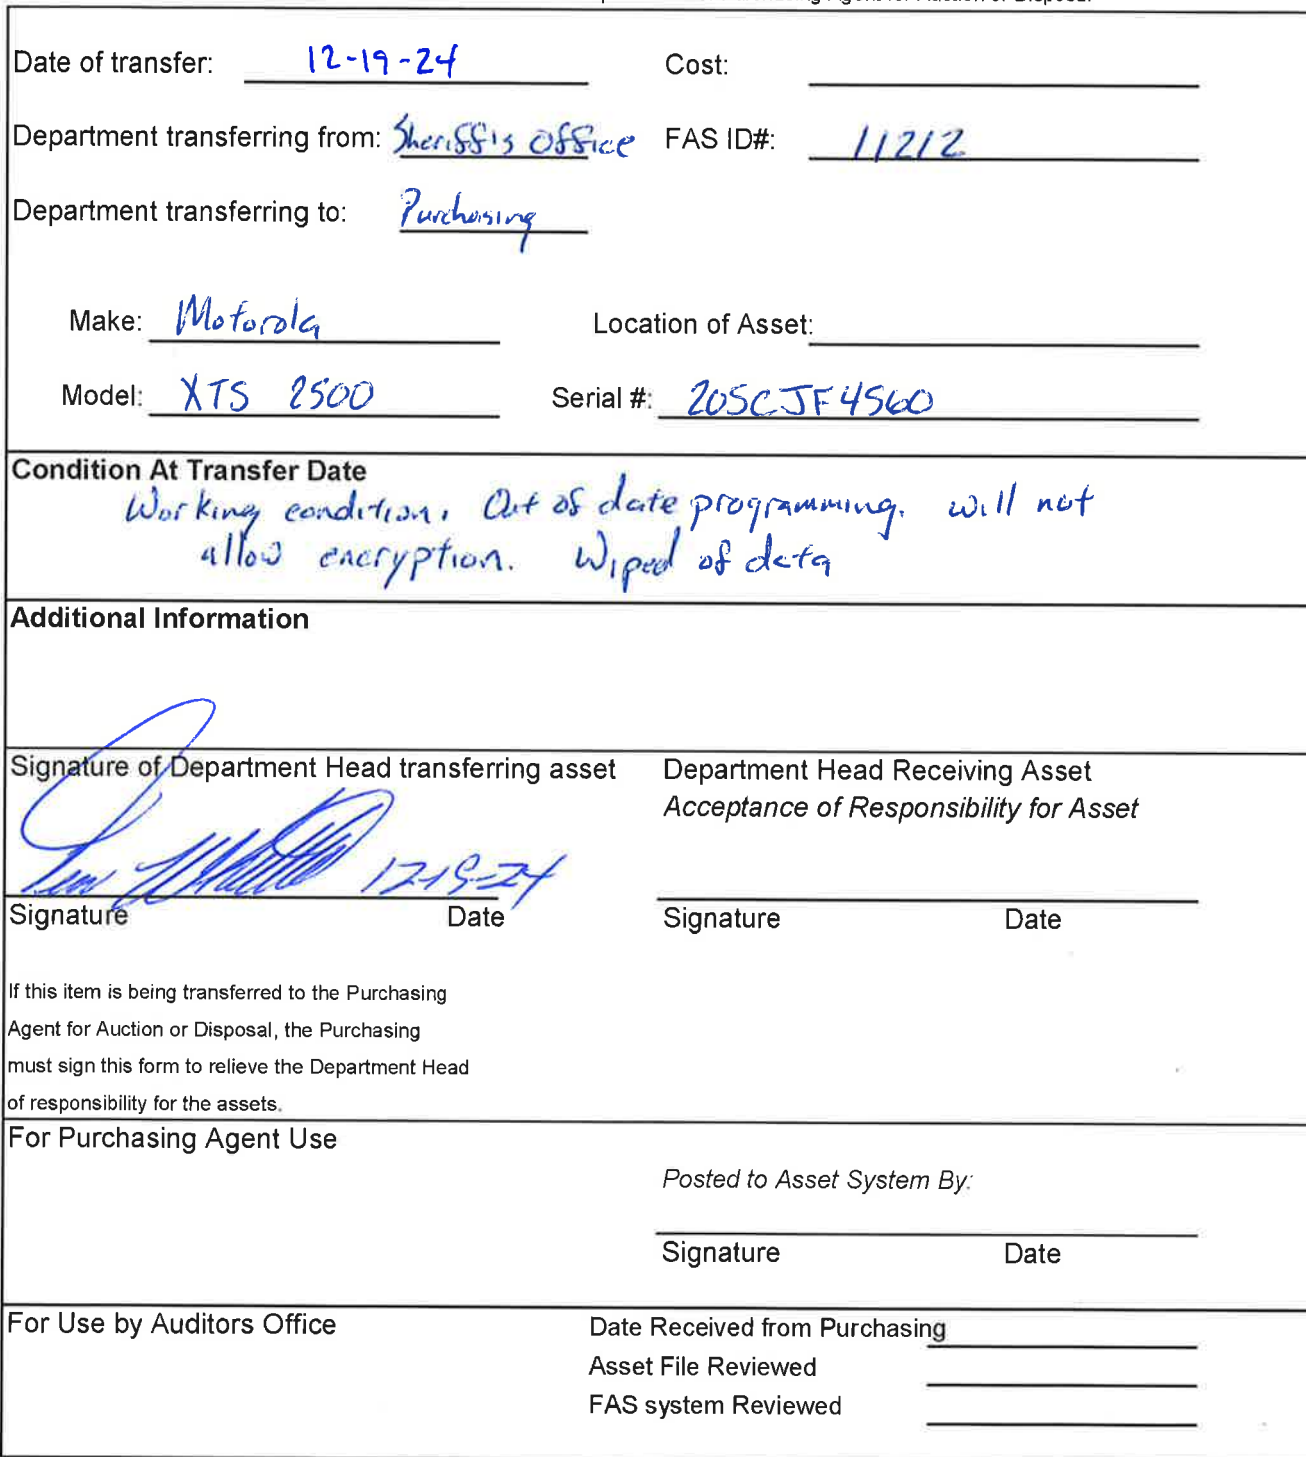 Date of transfer: 12-19-24 Cost:
Department transferring from: Sheriff's Office FAS ID#: 11212
Department transferring to: Purchasing
Make: Motorola Location of Asset:
Model: XTS 2500 Serial #: 205CJF4560
Condition At Transfer Date
Working condition. Out of date programming. will not
allow encryption. Wiped of data
Additional Information
Signature of Department Head transferring asset Department Head Receiving Asset
Acceptance of Responsibility for Asset
12-19-24
Signature Date Signature Date
If this item is being transferred to the Purchasing
Agent for Auction or Disposal, the Purchasing
must sign this form to relieve the Department Head
of responsibility for the assets.
For Purchasing Agent Use
Posted to Asset System By:
Signature Date
For Use by Auditors Office Date Received from Purchasing
Asset File Reviewed
FAS system Reviewed